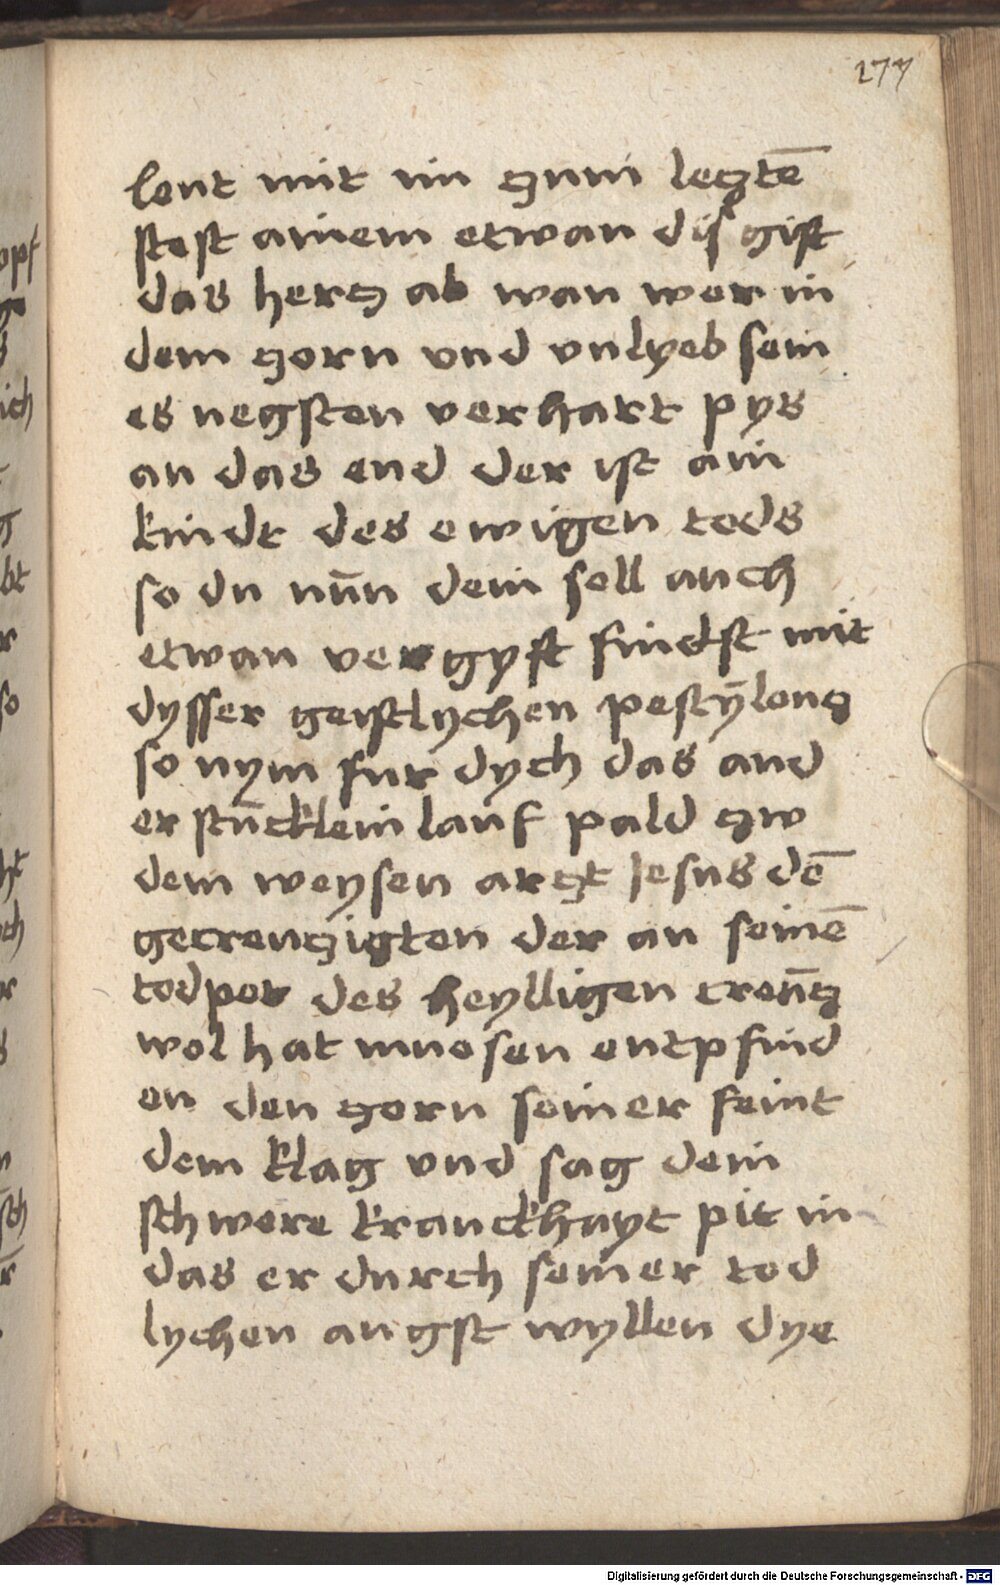 277
lent mit im zum letztē
stost ainem etwan dis gift
das hertz ab wan wer in
dem zorn vnd vnlyeb sein
es negsten verhart pys
an das end der ist ain
kindt des ewigen tods
so du nun̄ dein sell auch
etwan vergyft findst mit
dysser geistlychen pestȳlentz
so nym fur dych das and
er stucklein lauf pald zw
dem weysen artzt Jesus dē
gecreutzigten der an seinē
todpot des heylligen creūtz
wol hat muosen entpfind
en den zorn seiner feint
dem klag vnd sag dein
schwere kranckhayt pit in
das er durch seiner tod
lychen angst wyllen dye
Digitalisierung gefördert durch die Deutsche Forschungsgemeinschaft - DFG